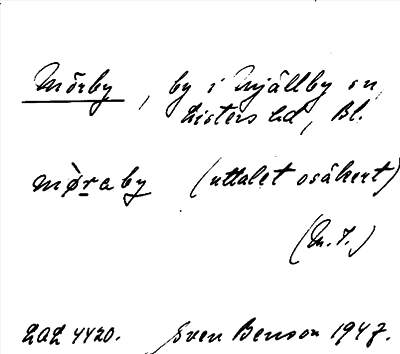 Mörby, by i Mjällby sn,
Listers hd, Bl.
mø̀raby (uttalet osäkert)
(M.T.)
LAL 4420. Sven Benson 1947.